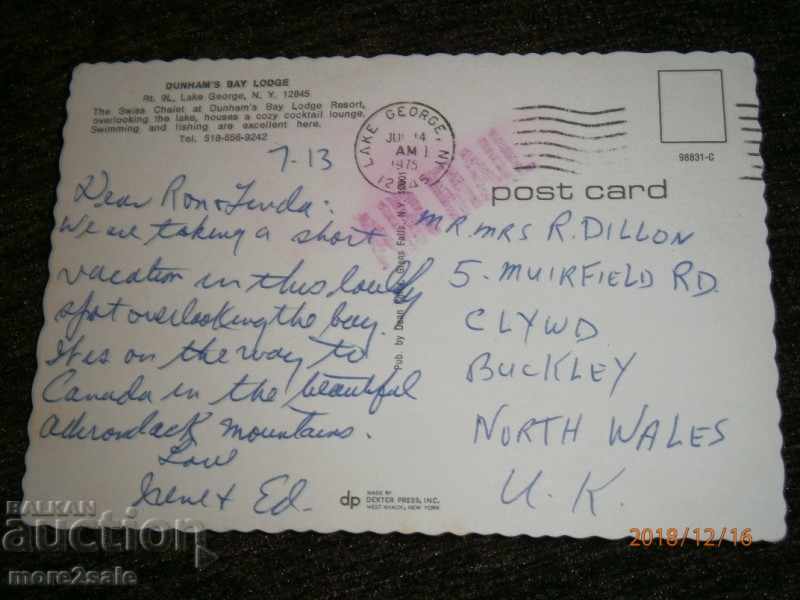 DUNHAM'S BAY LODGE
Rt. 9L, Lake George, N. Y. 12845
The Swiss Chalet at Dunham's Bay Lodge Resort,
overlooking the lake, houses a cozy cocktail lounge.
Swimming and fishing are excellent here.
Tel. 518-656-9242
7-13
Dear Ron & Linda:
We are taking a short
vacation in this lovely
spot overlooking the bay.
It is on the way to
Canada in the beautiful
Adirondack Mountains.
Love
Irene & Ed.
LAKE GEORGE, NY
AM
1975
12845
AIR MAIL
98831-C
post card
MR. MRS R. DILLON
5. MUIRFIELD RD.
CLYWD
BUCKLEY
NORTH WALES
U. K.
Pub. by Dean Glens Falls, N.Y.
dp
MADE BY
DEXTER PRESS, INC.
WEST NYACK, NEW YORK
BALKAN
auction
more2sale
2018/12/16